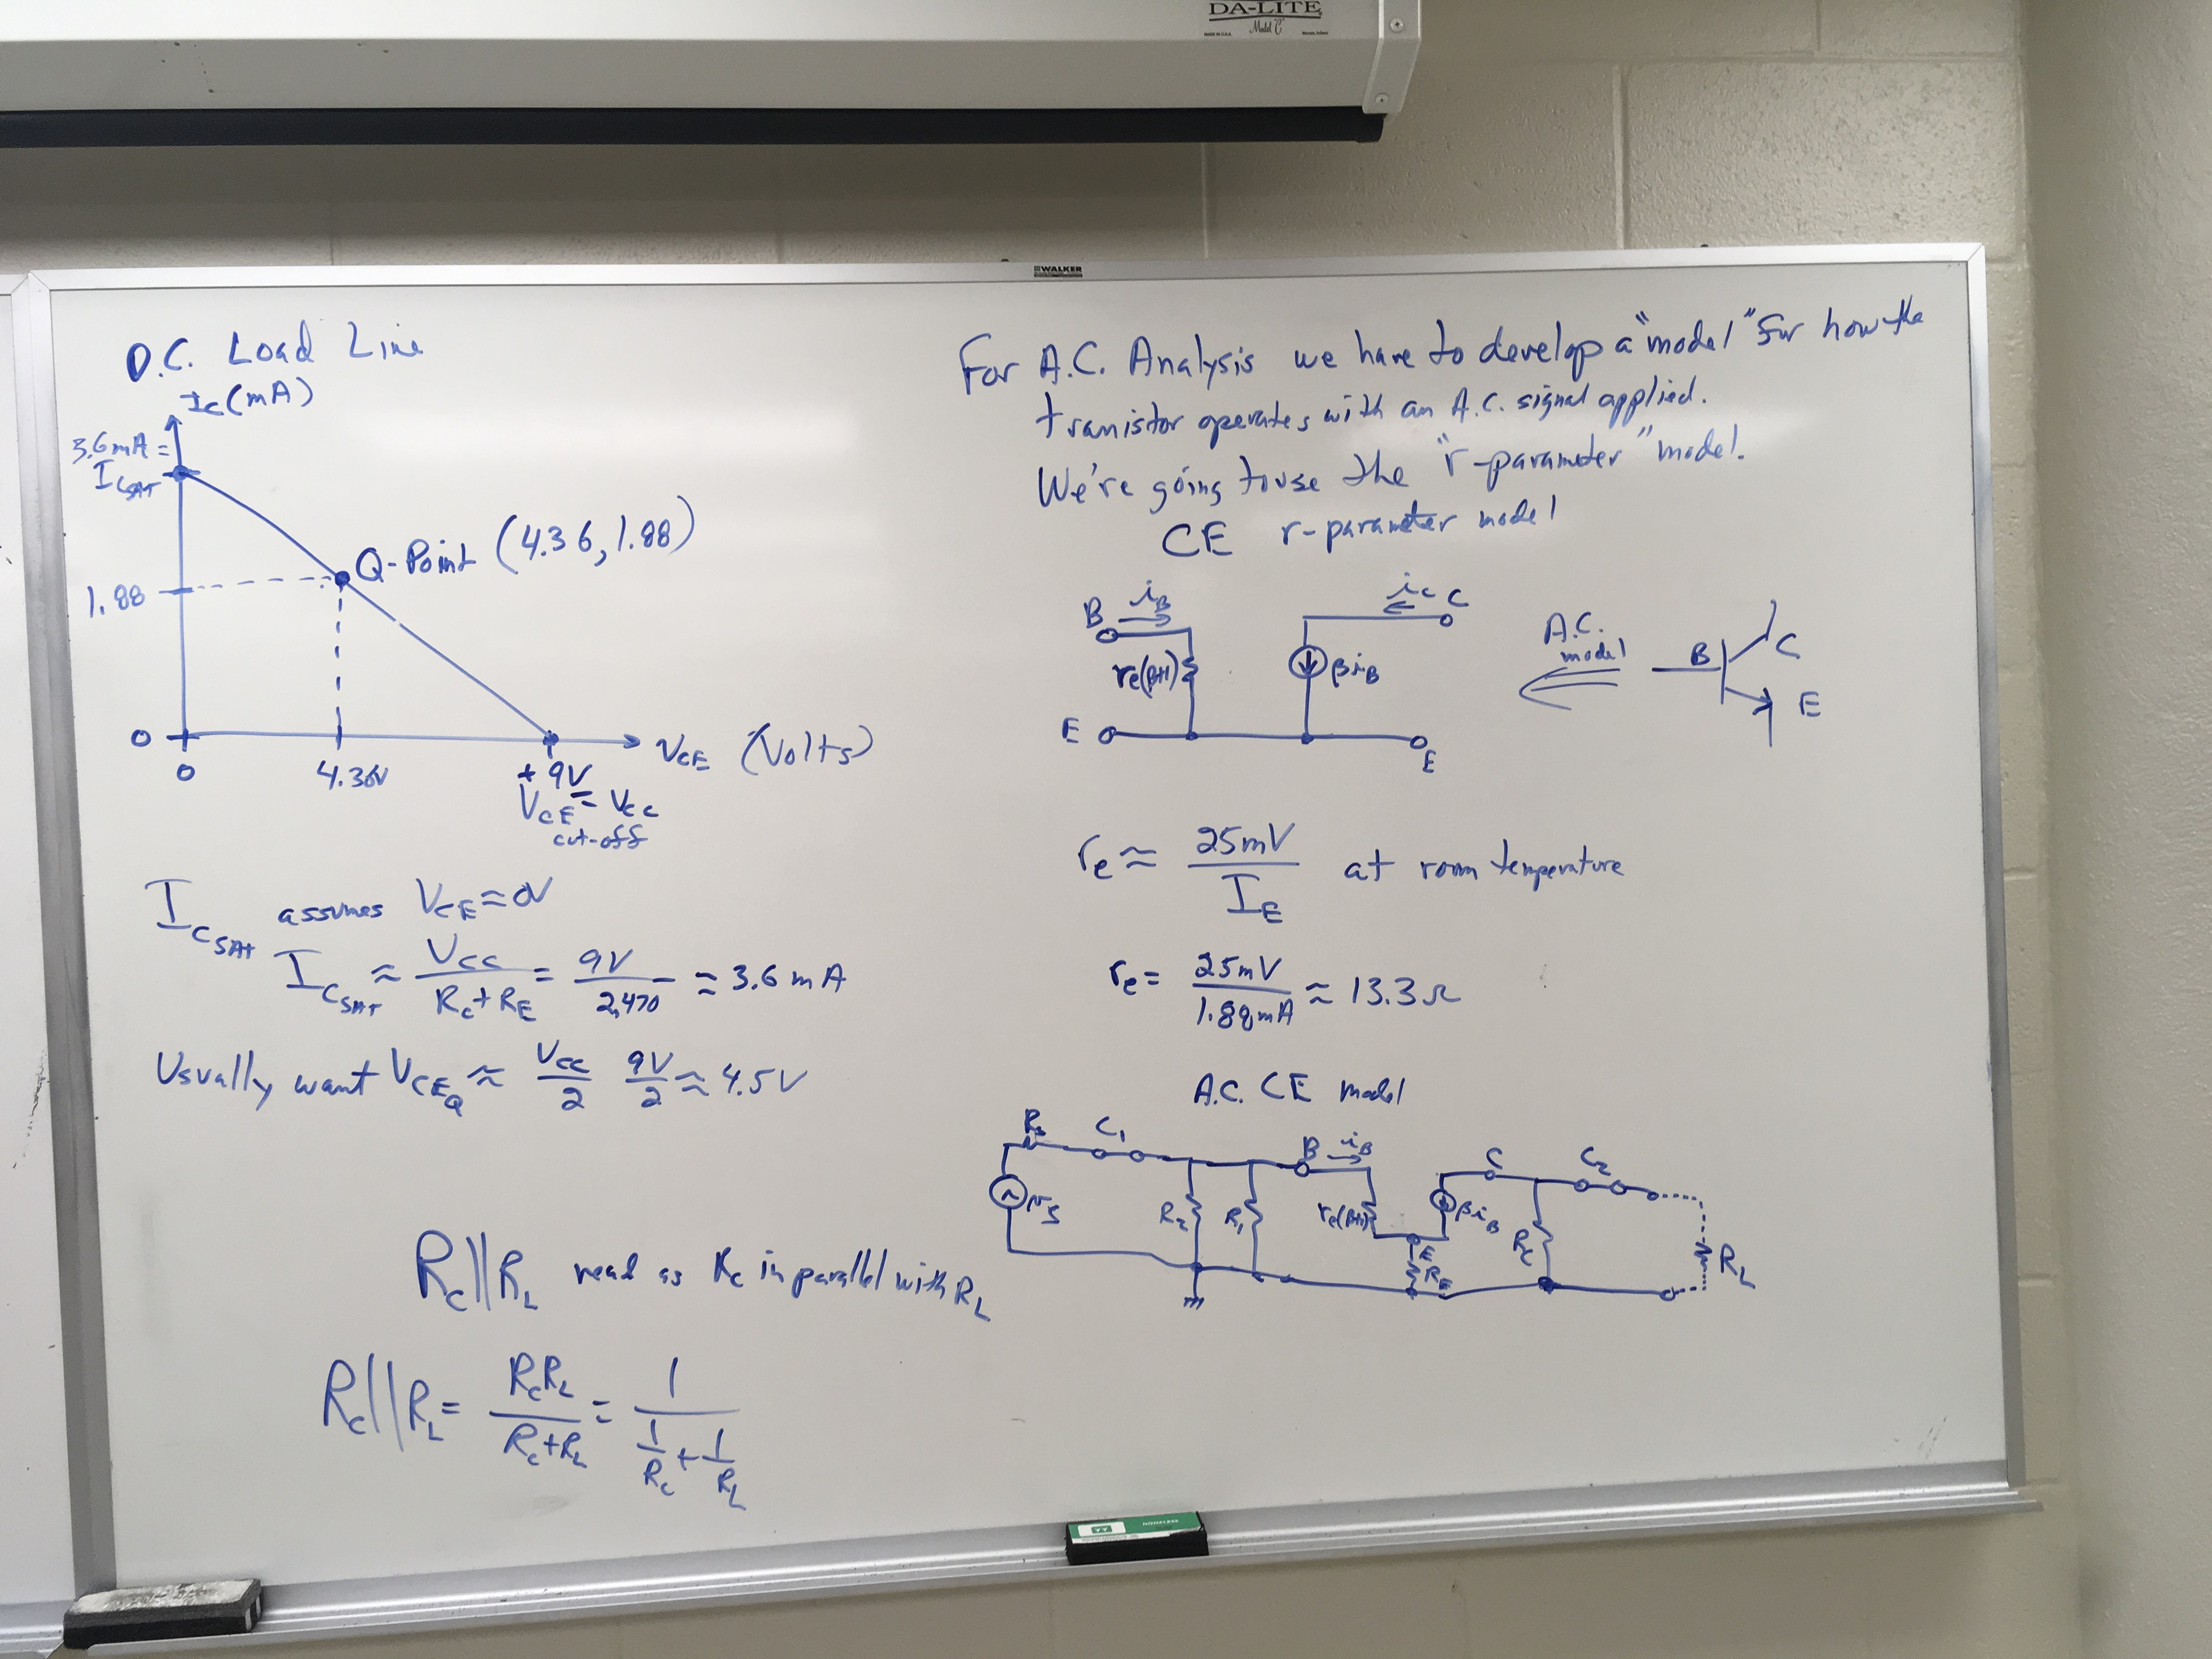 DA-LITE
Model C
MADE IN U.S.A.
WALKER
D.C. Load Line
Ic (mA)
3.6mA =
I CSAT
Q-Point (4.36, 1.88)
1.88
0
0
4.36V
+9V
VCE = VCC
cut-off
VCE (Volts)
ICSAT assumes VCE ≈ 0V
ICSAT ≈ VCC / (RC + RE) = 9V / 2,470 ≈ 3.6 mA
Usually want VCEQ ≈ VCC / 2 9V / 2 ≈ 4.5V
RC || RL read as RC in parallel with RL
RC || RL = RCRL / (RC + RL) = 1 / (1/RC + 1/RL)
For A.C. Analysis we have to develop a "model" for how the
tranistor operates with an A.C. signal applied.
We're going to use the "r-parameter" model.
CE r-parameter model
B
iB
re(β+1)
E
ic
C
βiB
E
A.C.
model
B
C
E
re ≈ 25mV / IE at room temperature
re = 25mV / 1.88mA ≈ 13.3Ω
A.C. CE model
Rs
C1
B
iB
C
C2
vs
R2
R1
re(β+1)
βiB
E
RE
RC
RL